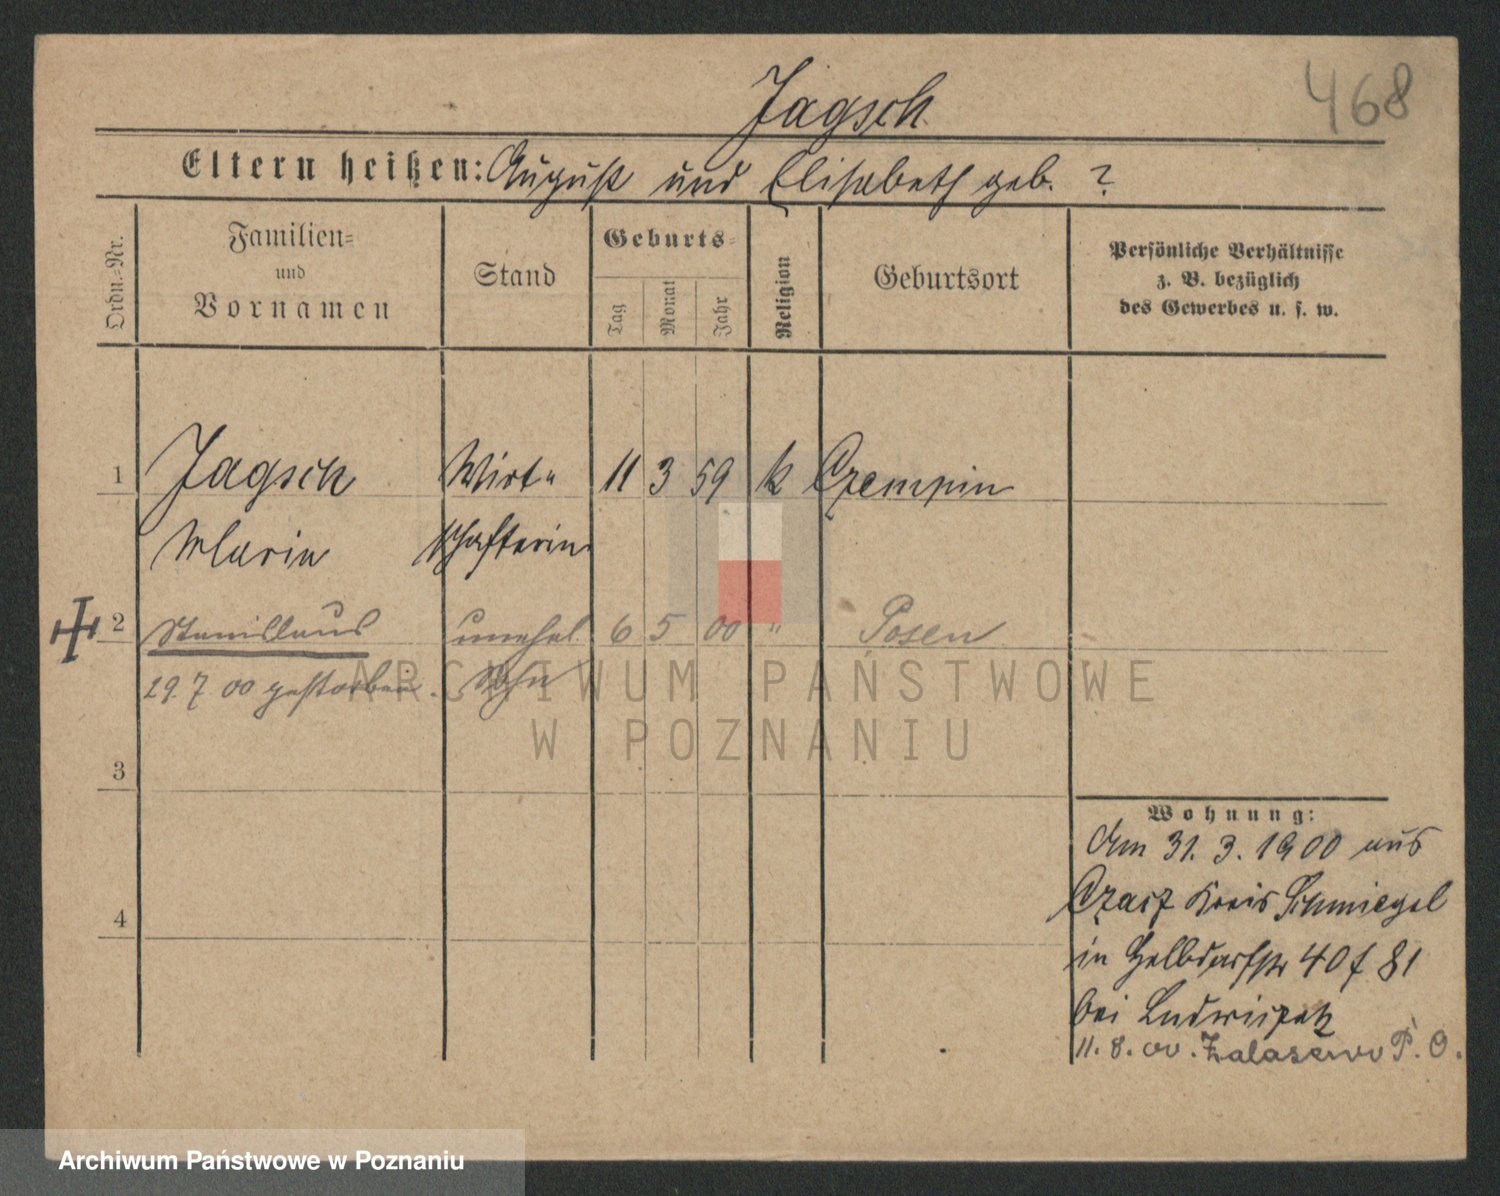 468
Jagsch
Eltern heißen: August und Elisabeth geb. ?
Ordn.=Nr.
Familien=
und
Vornamen
Stand
Geburts=
Tag
Monat
Jahr
Religion
Geburtsort
Persönliche Verhältnisse
z. B. bezüglich
des Gewerbes u. s. w.
1 Jagsch Wirt= 11 3 59 k Czempin
Maria schafterin
2 Stanislaus unehel. 6 5 00 " Posen
29. 7 00 gestorben. Sohn
3
4
Wohnung:
Am 31. 3. 1900 aus
Czacz Kreis Schmiegel
in Halbdorfstr 40 f 81
bei
11. 8. 00. Zalasewo P. O.
ARCHIWUM PAŃSTWOWE
W POZNANIU
Archiwum Państwowe w Poznaniu